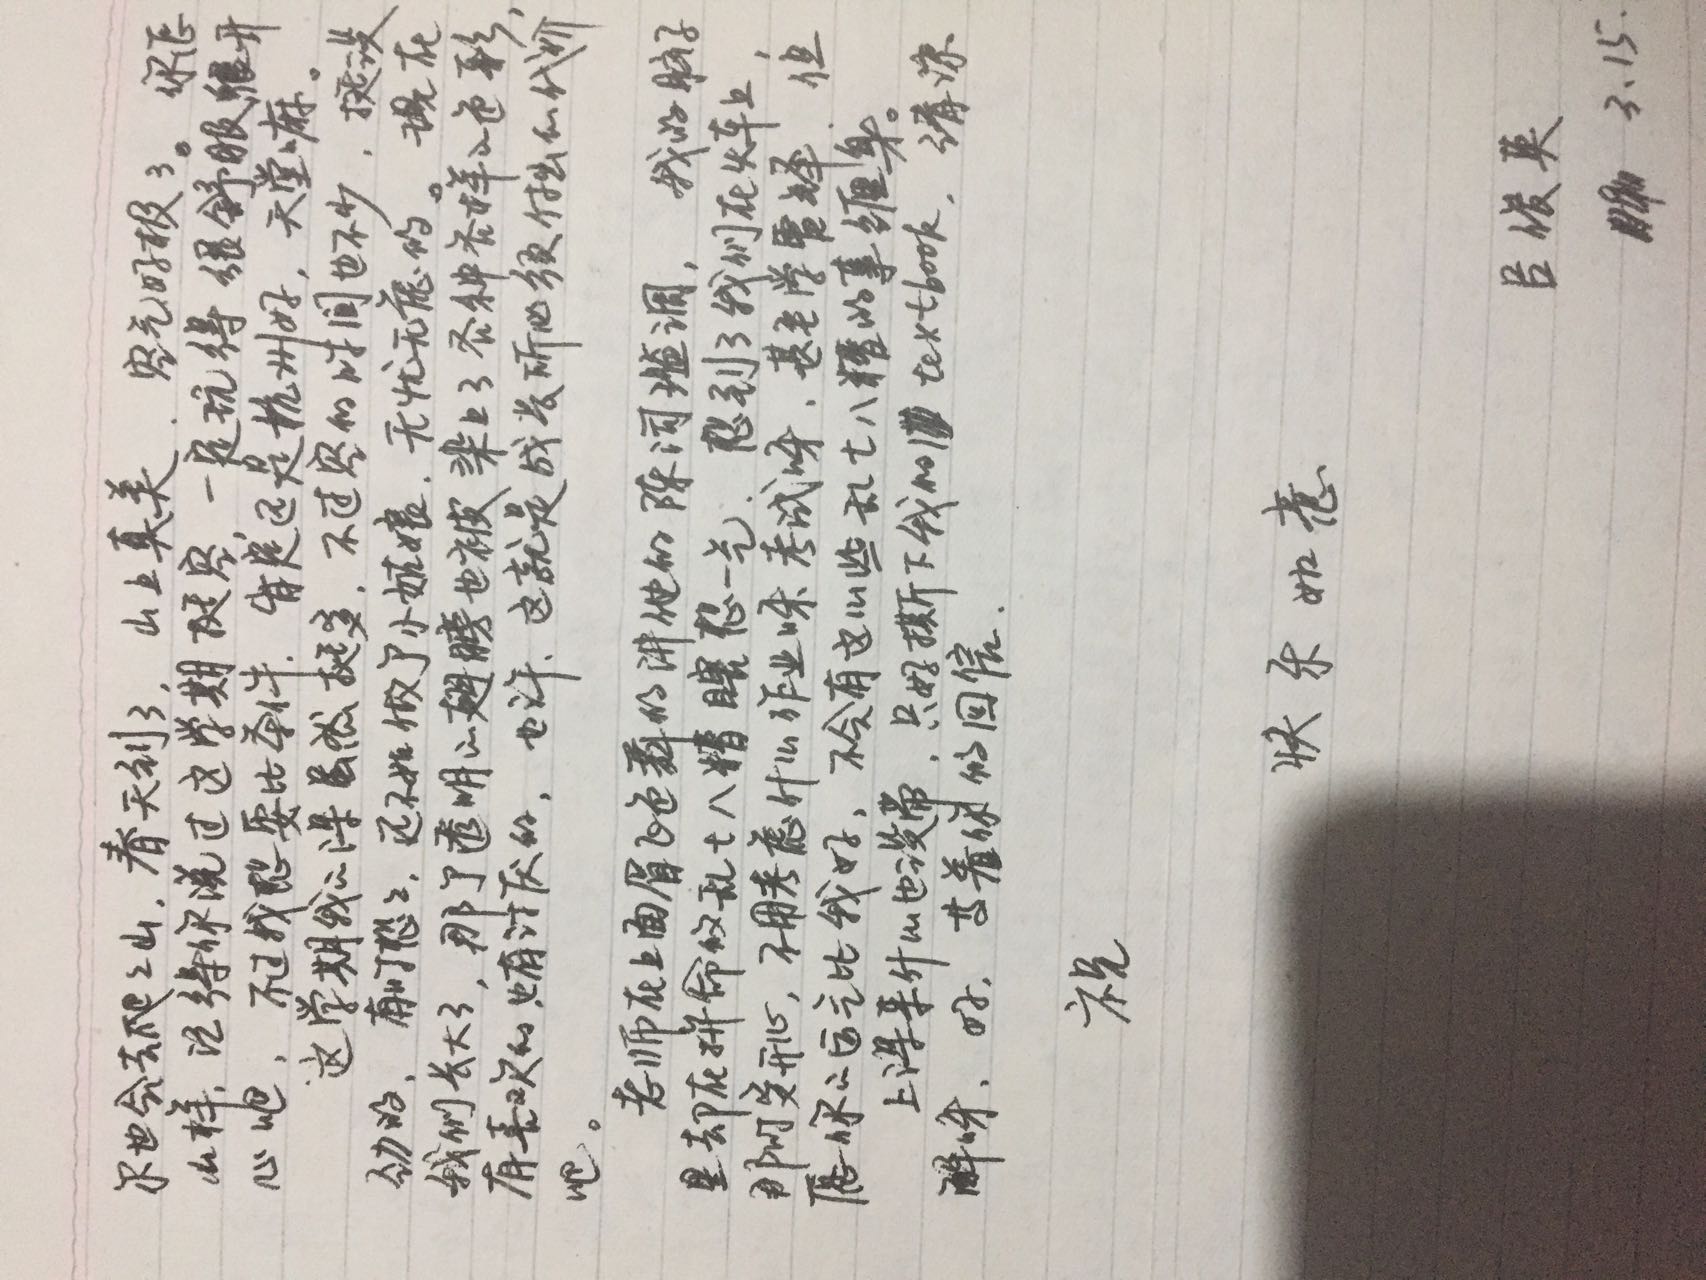 尔也会去爬爬山，春天到了，山上真美，空气好极了。你怎
么样，记得你说过这学期挺空，一定玩得很舒服，很开
心吧，不过我想要比条件，肯定还是杭州好，天堂嘛。
这学期我的课虽然挺多，不过空的时间也不少，挺没
劲的，有时想想，还不如做个小姑娘，无忧无虑的。现在
我们长大了，那个透明的翅膀也被染上了各种各样的色彩，
有喜欢的，也有讨厌的，也许，这就是成长所必须付出的代价
吧。
老师在上面眉飞色舞的讲他的陈词滥调，我的脑子
里却在拼命的乱七八糟瞎想一气，想到了我们在火车上，
那时多开心，不用考虑什么作业呀考试呀，甚至学雷锋，但
愿你的运气比我好，不会有这么些乱七八糟的事缠身。
上课来什么也没带，只好撕下我的 textbook，请谅
解呀，好，等着你的回信．
祝
快乐如意
吕俊英
3.15.